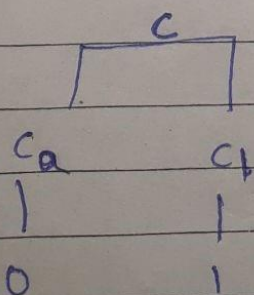 C
Ca Cb
| |
0 1